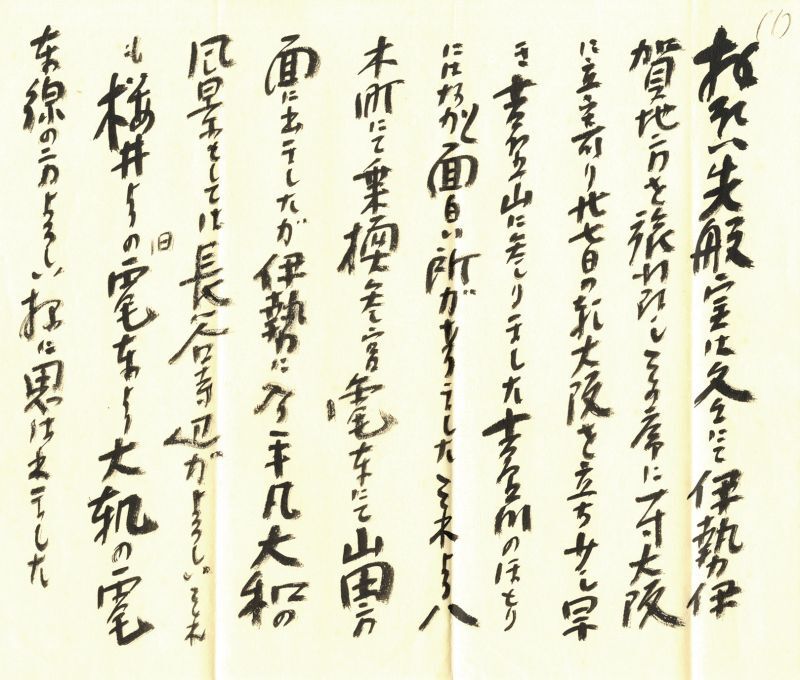 (1)
拝啓 先般実は久々にて伊勢伊
賀地方を旅行致しその序に一寸大阪
に立寄り廿七日の朝大阪を立ち少し早
き 山に参りました 川のほとり
にはなかなか面白い所がありました それより八
木町にて乗換参宮電車にて山田方
面に出ましたが伊勢に入ㇾ平凡大和の
風景としては長谷寺辺がよろしいそれ
も桜井よりの旧電車より大軌の電
車線の方よろしい様に思はれました